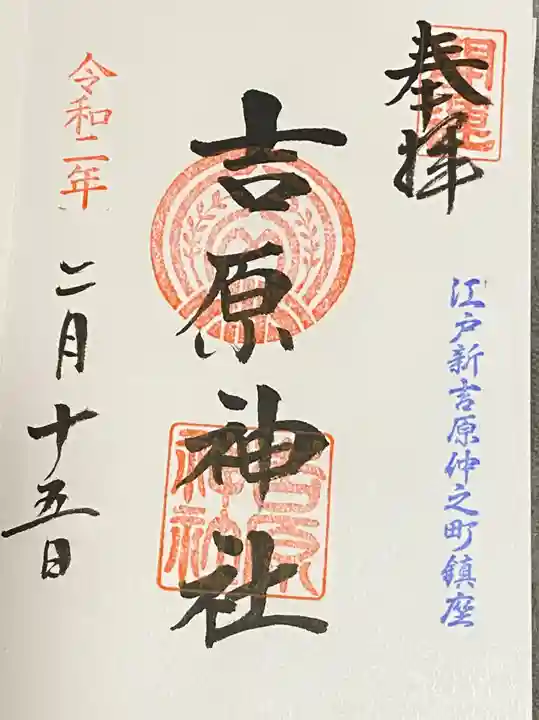 奉拝
開運
江戸新吉原仲之町鎮座
吉原神社
吉原
神社
令和二年
二月十五日